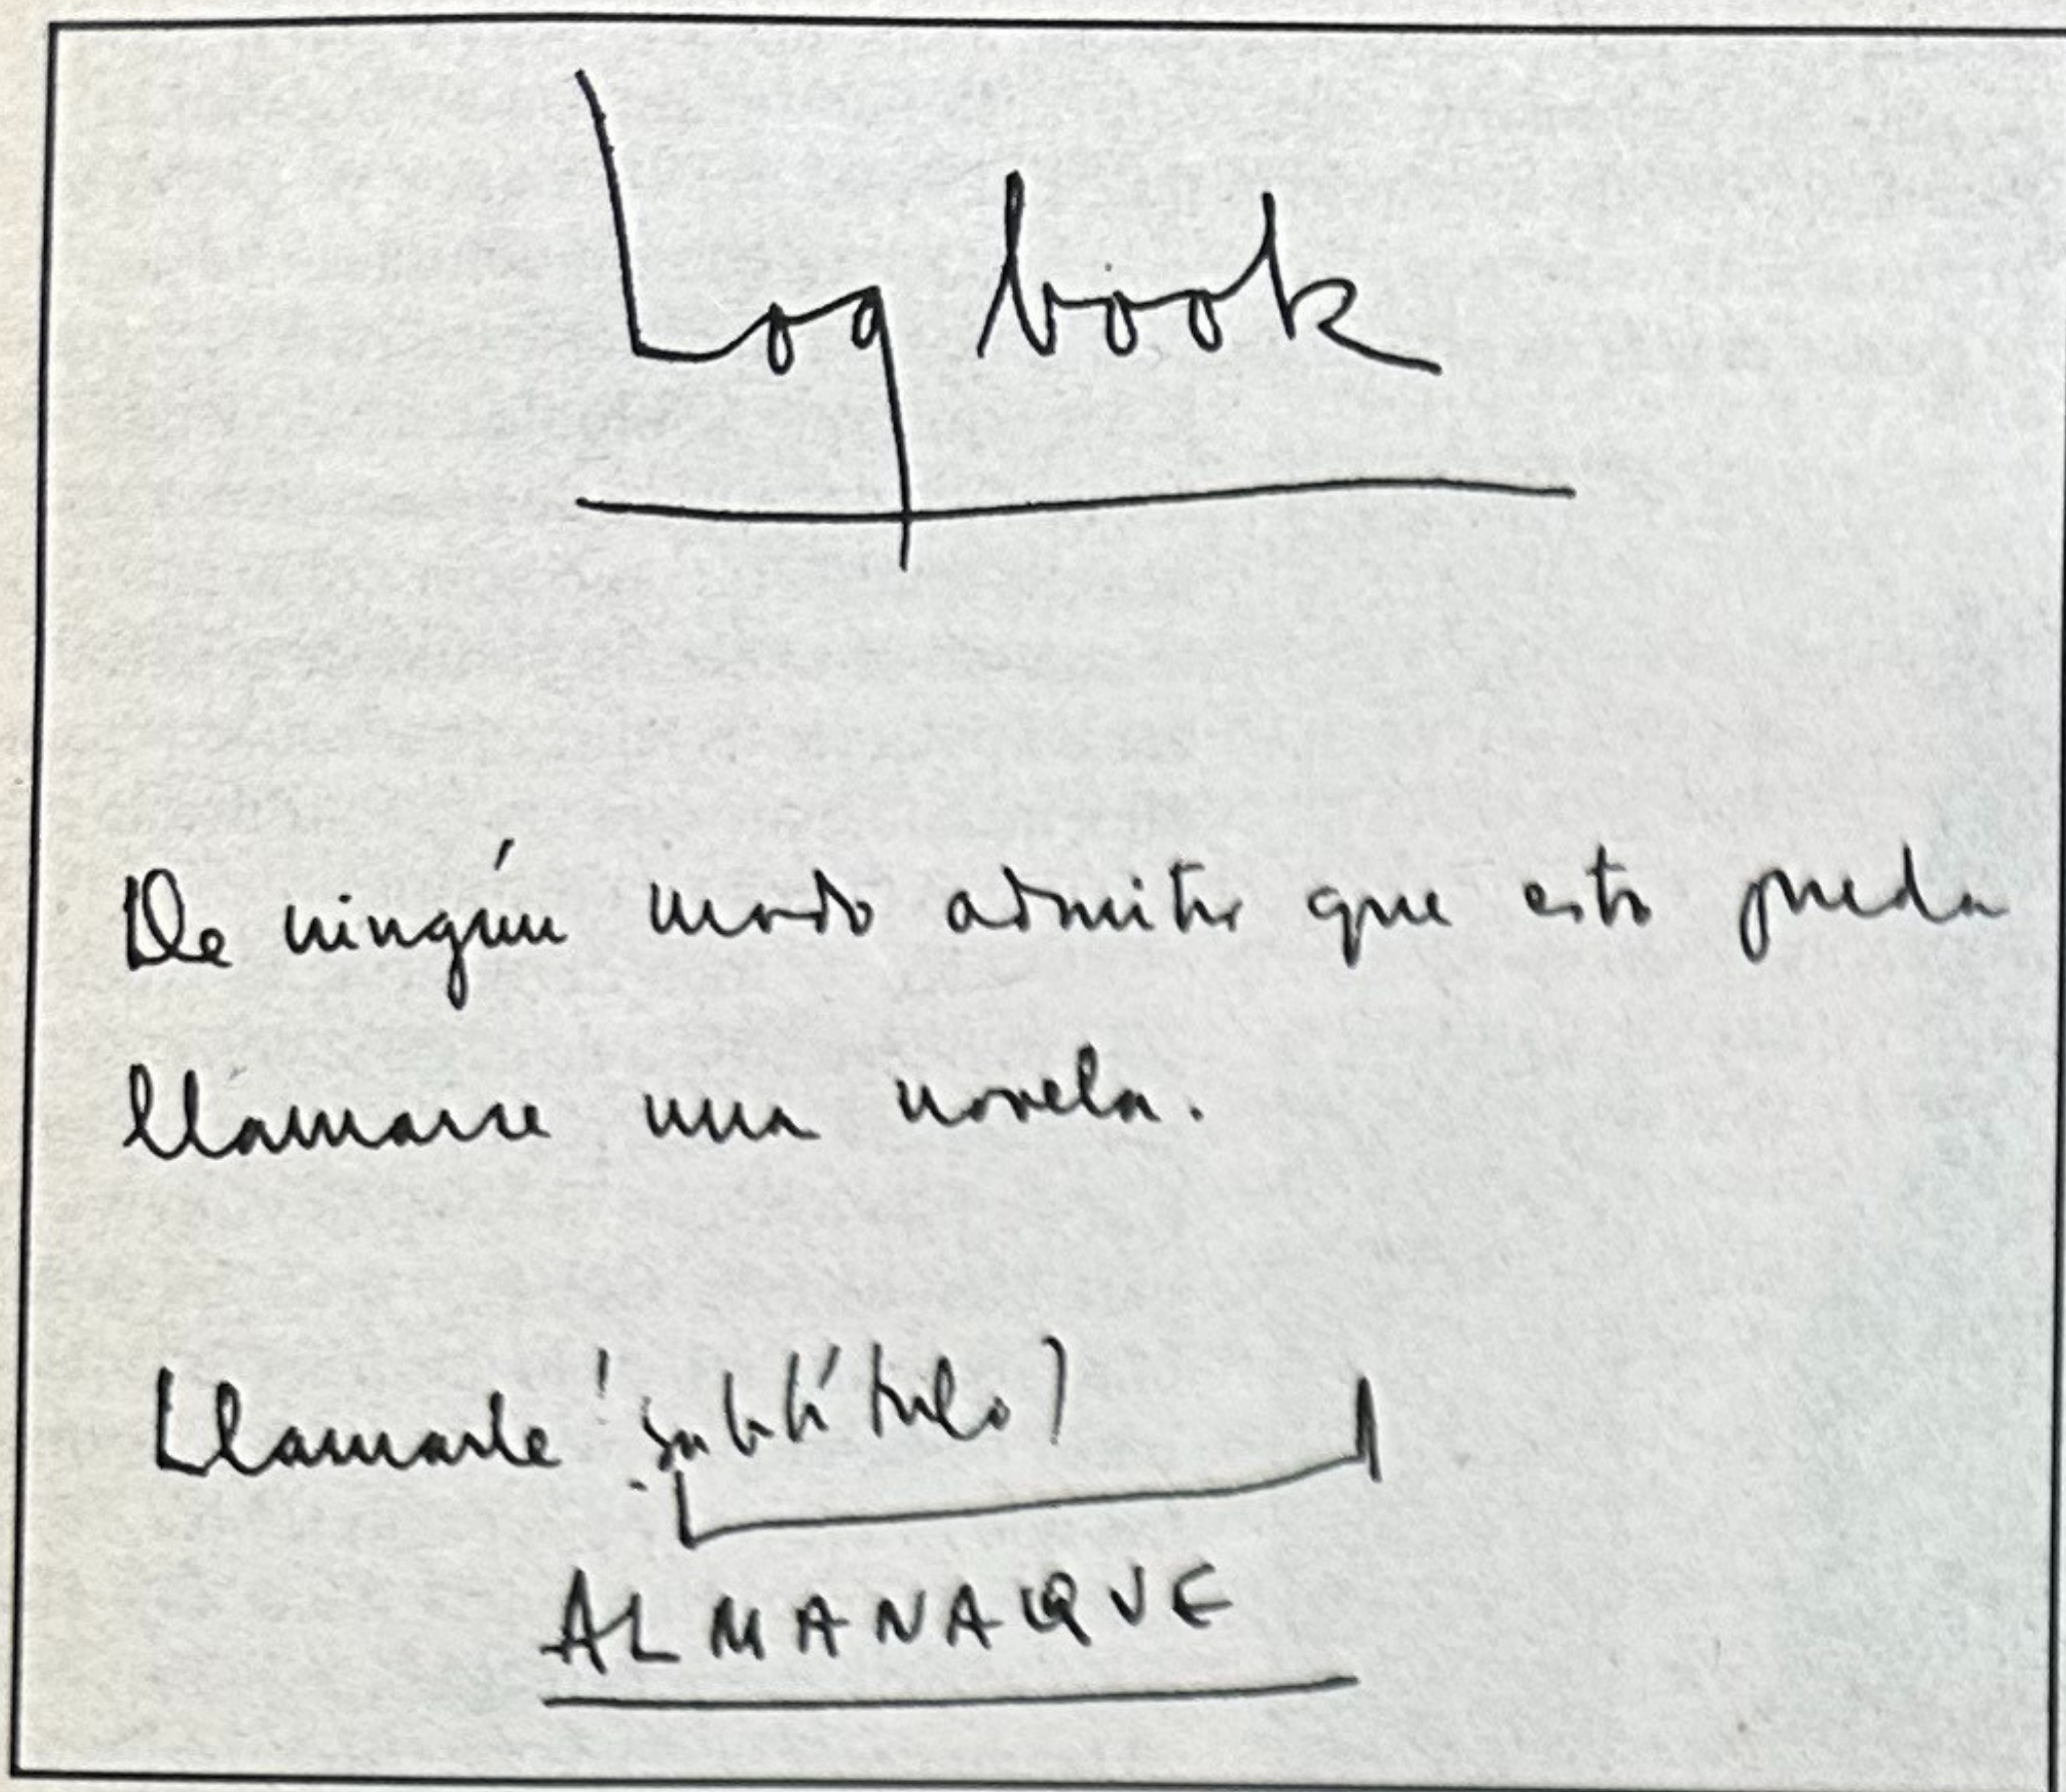 Log book
De ningún modo admitir que esto pueda
llamarse una novela.
Llamarle (subtítulo)
ALMANAQUE